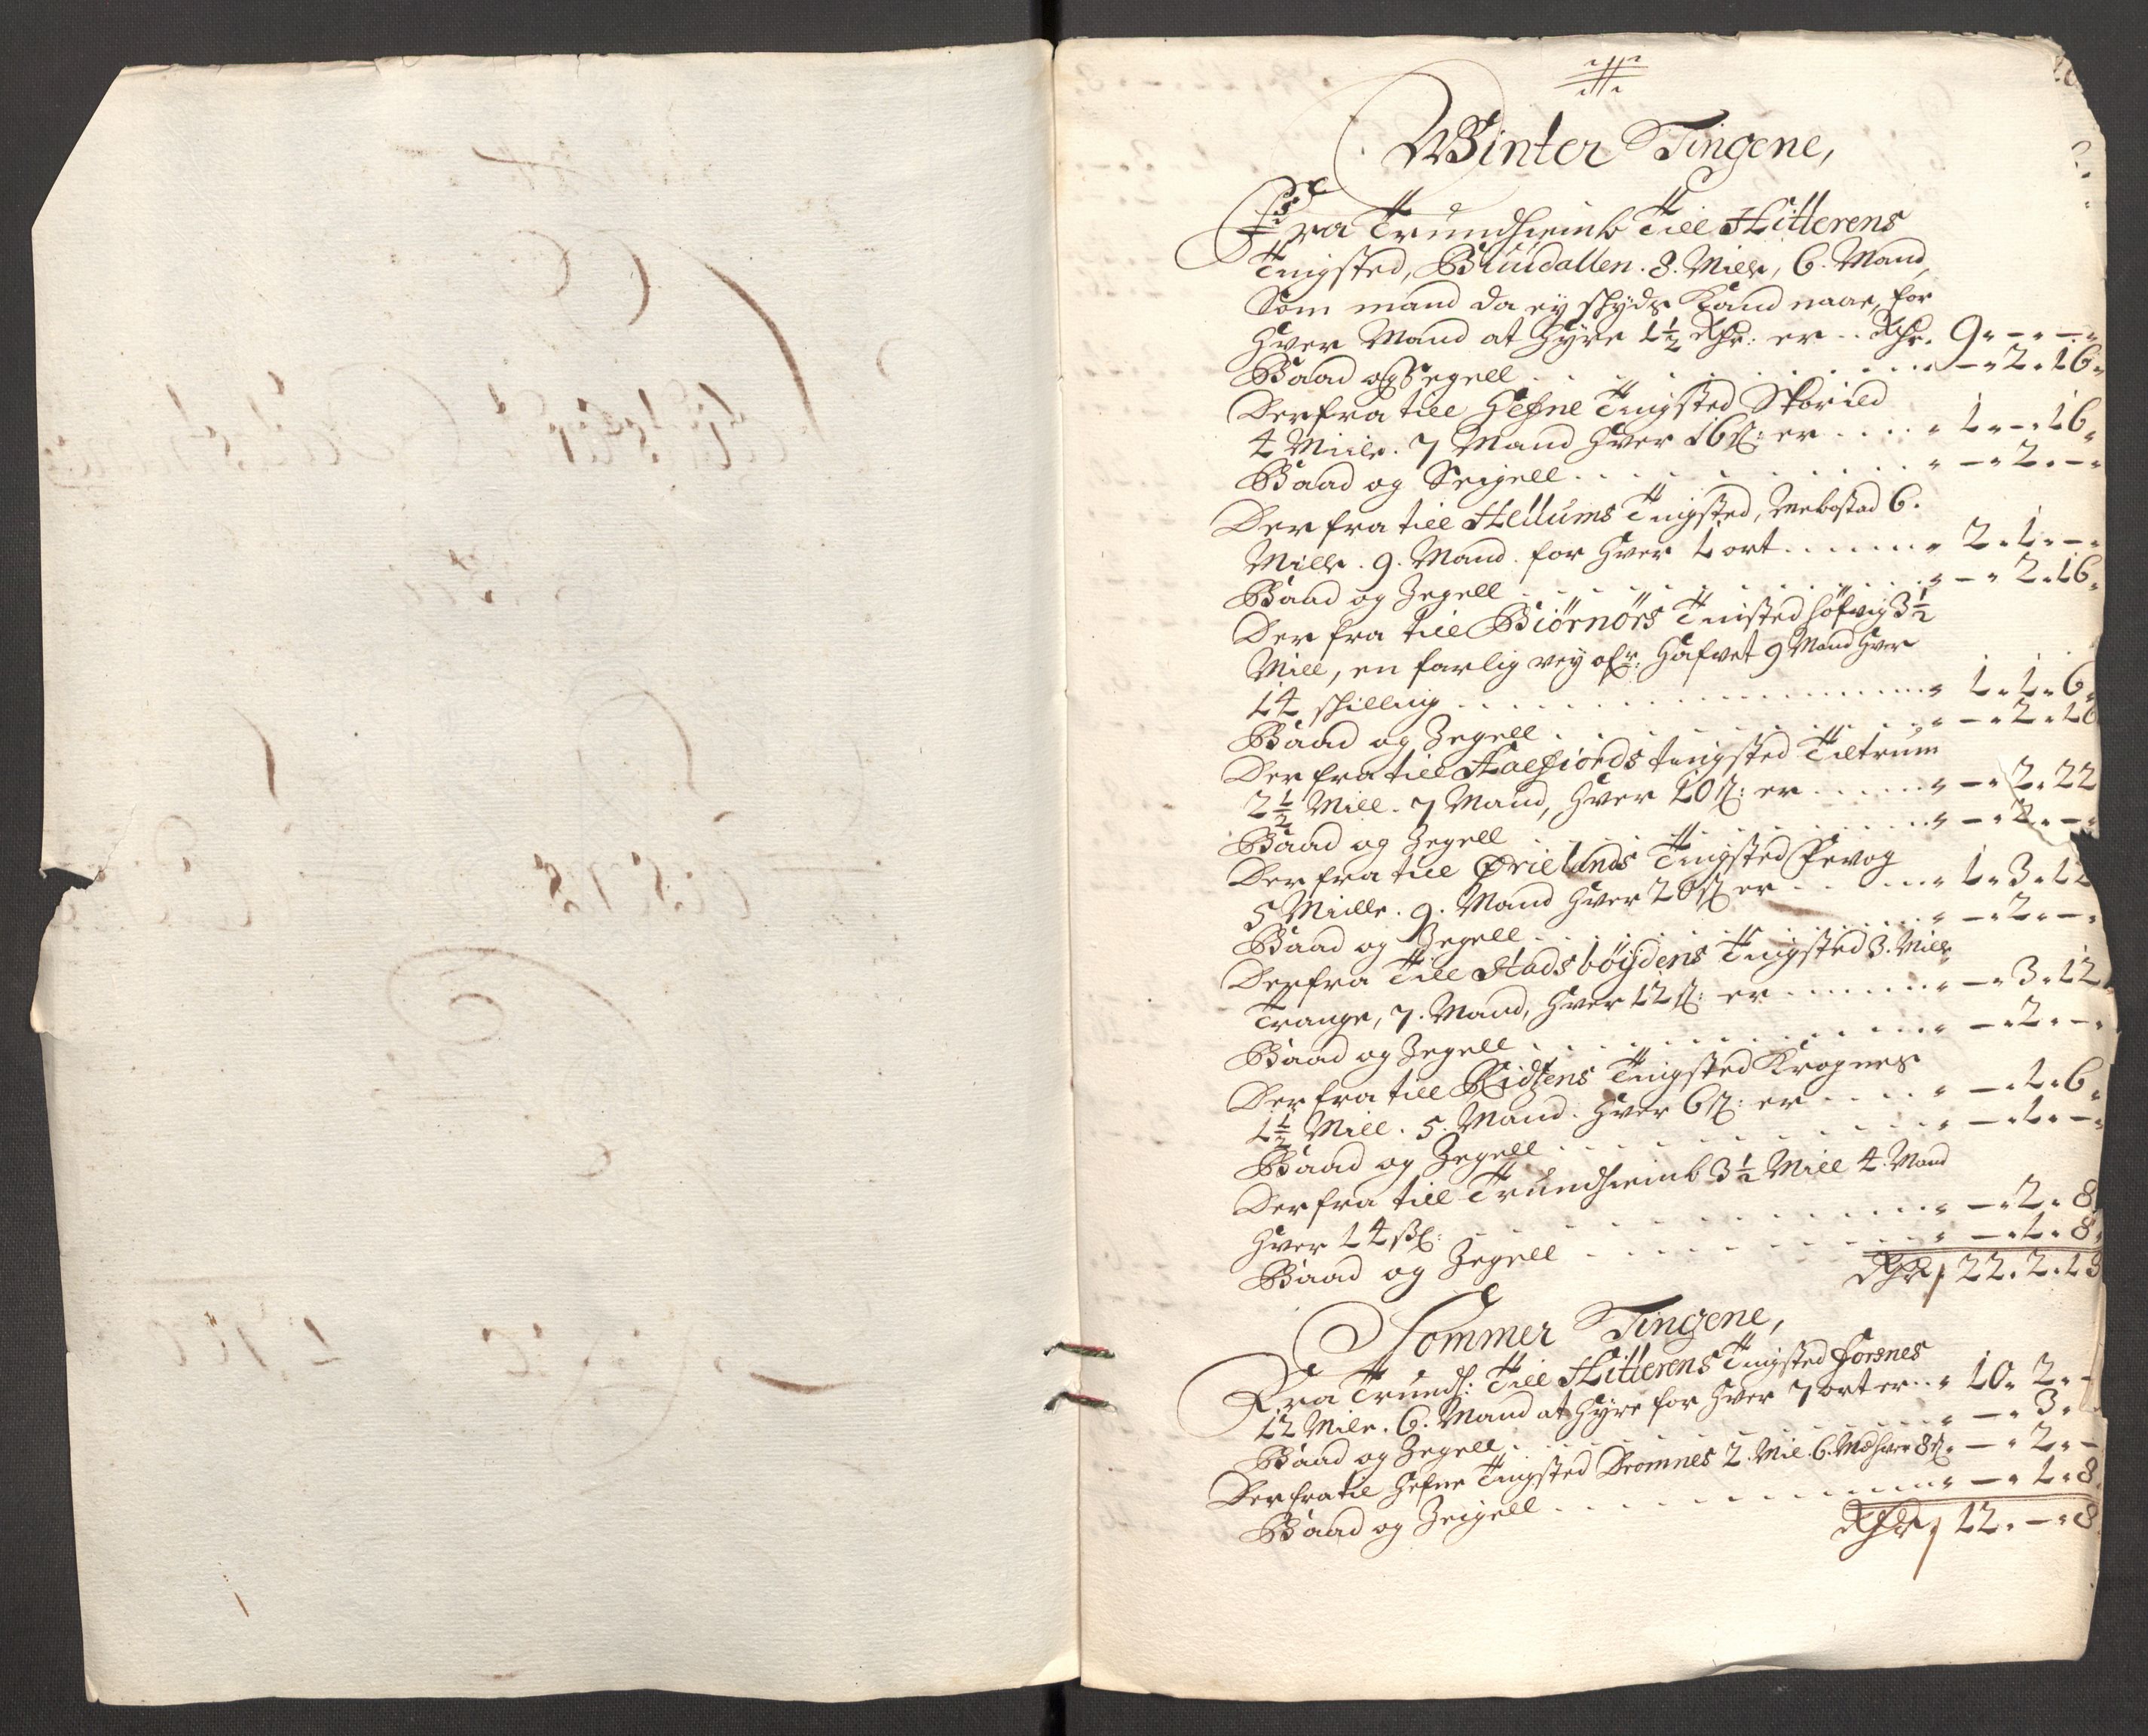 Winter Tingene,
Fra Trundhiemb Till Hitterens
Tingsted, 8. Mille, 6. Mand,
Som mand da ey skyds Kand naae, for
hver Mand at hyre 1½ Rdr: er .. Rdr. 9 " - " - "
Baad og Segell . . . . " - " 2 " 16 "
Derfra till Hefne Tingsted
4 Miile. 7 Mand hver 16 s: er . . . . " 1 " - " 16 "
Baad og Seigell . . . . " - " 2 " - "
Der fra till Hellums Tingsted, 6.
Mille. 9. Mand. for hver 1 ort . . . . " 2 " 1 " - "
Baad og Zegell . . . . " - " 2 " 16 "
Der fra till Biørnørs Tinsted 3½
Mill, en farlig vey ofr: Hafvet 9 Mand hver
14 skilling . . . . " 1 " 1 " 6 "
Baad og Zegell . . . . " - " 2 " 16
Der fra till tingsted Tiltrum
2½ Mill. 7 Mand, hver 10 s: er . . . . " - " 2 " 22
Baad og Zegell . . . . " - " 2 " - "
Der fra till Ørielands Tingsted
5 Miille. 9. Mand hver 20 s er . . . . " 1 " 3 " 12
Baad og Zegell . . . . " - " 2 " - "
Derfra Till Stadsbøÿdens Tingsted 3. Mille
7. Mand, hver 12 s: er . . . . " - " 3 " 12
Baad og Zegell . . . . " - " 2 " - "
Der fra till Tingsted Krognes
1½ Mill. 5. Mand. hver 6 s: er . . . . " - " 1 " 6 "
Baad og Zegell . . . . " - " 1 " - "
Der fra till Trundhiemb 3½ Mill 4. Mand
hver 14 s: . . . . " - " 2 " 8
Baad og Zegell . . . . " - " 1 " 8 "
Rdr 22 " 2 " 18
Sommer Tingene,
Fra Trundh: Till Hitterens Tingsted Forsnes
12 Mile. 6. Mand at hyre for hver 7 ort er .. " 10 " 2 " -
Baad og Zegell . . . . " - " 3 "
Der fra til Hefne Tingsted Dromnes 2. Mil. 6. Md hver 8 s. " - " 2 " -
Baad og Zeigell . . . . " - " 1 " 8
Rdr 12 " - " 8